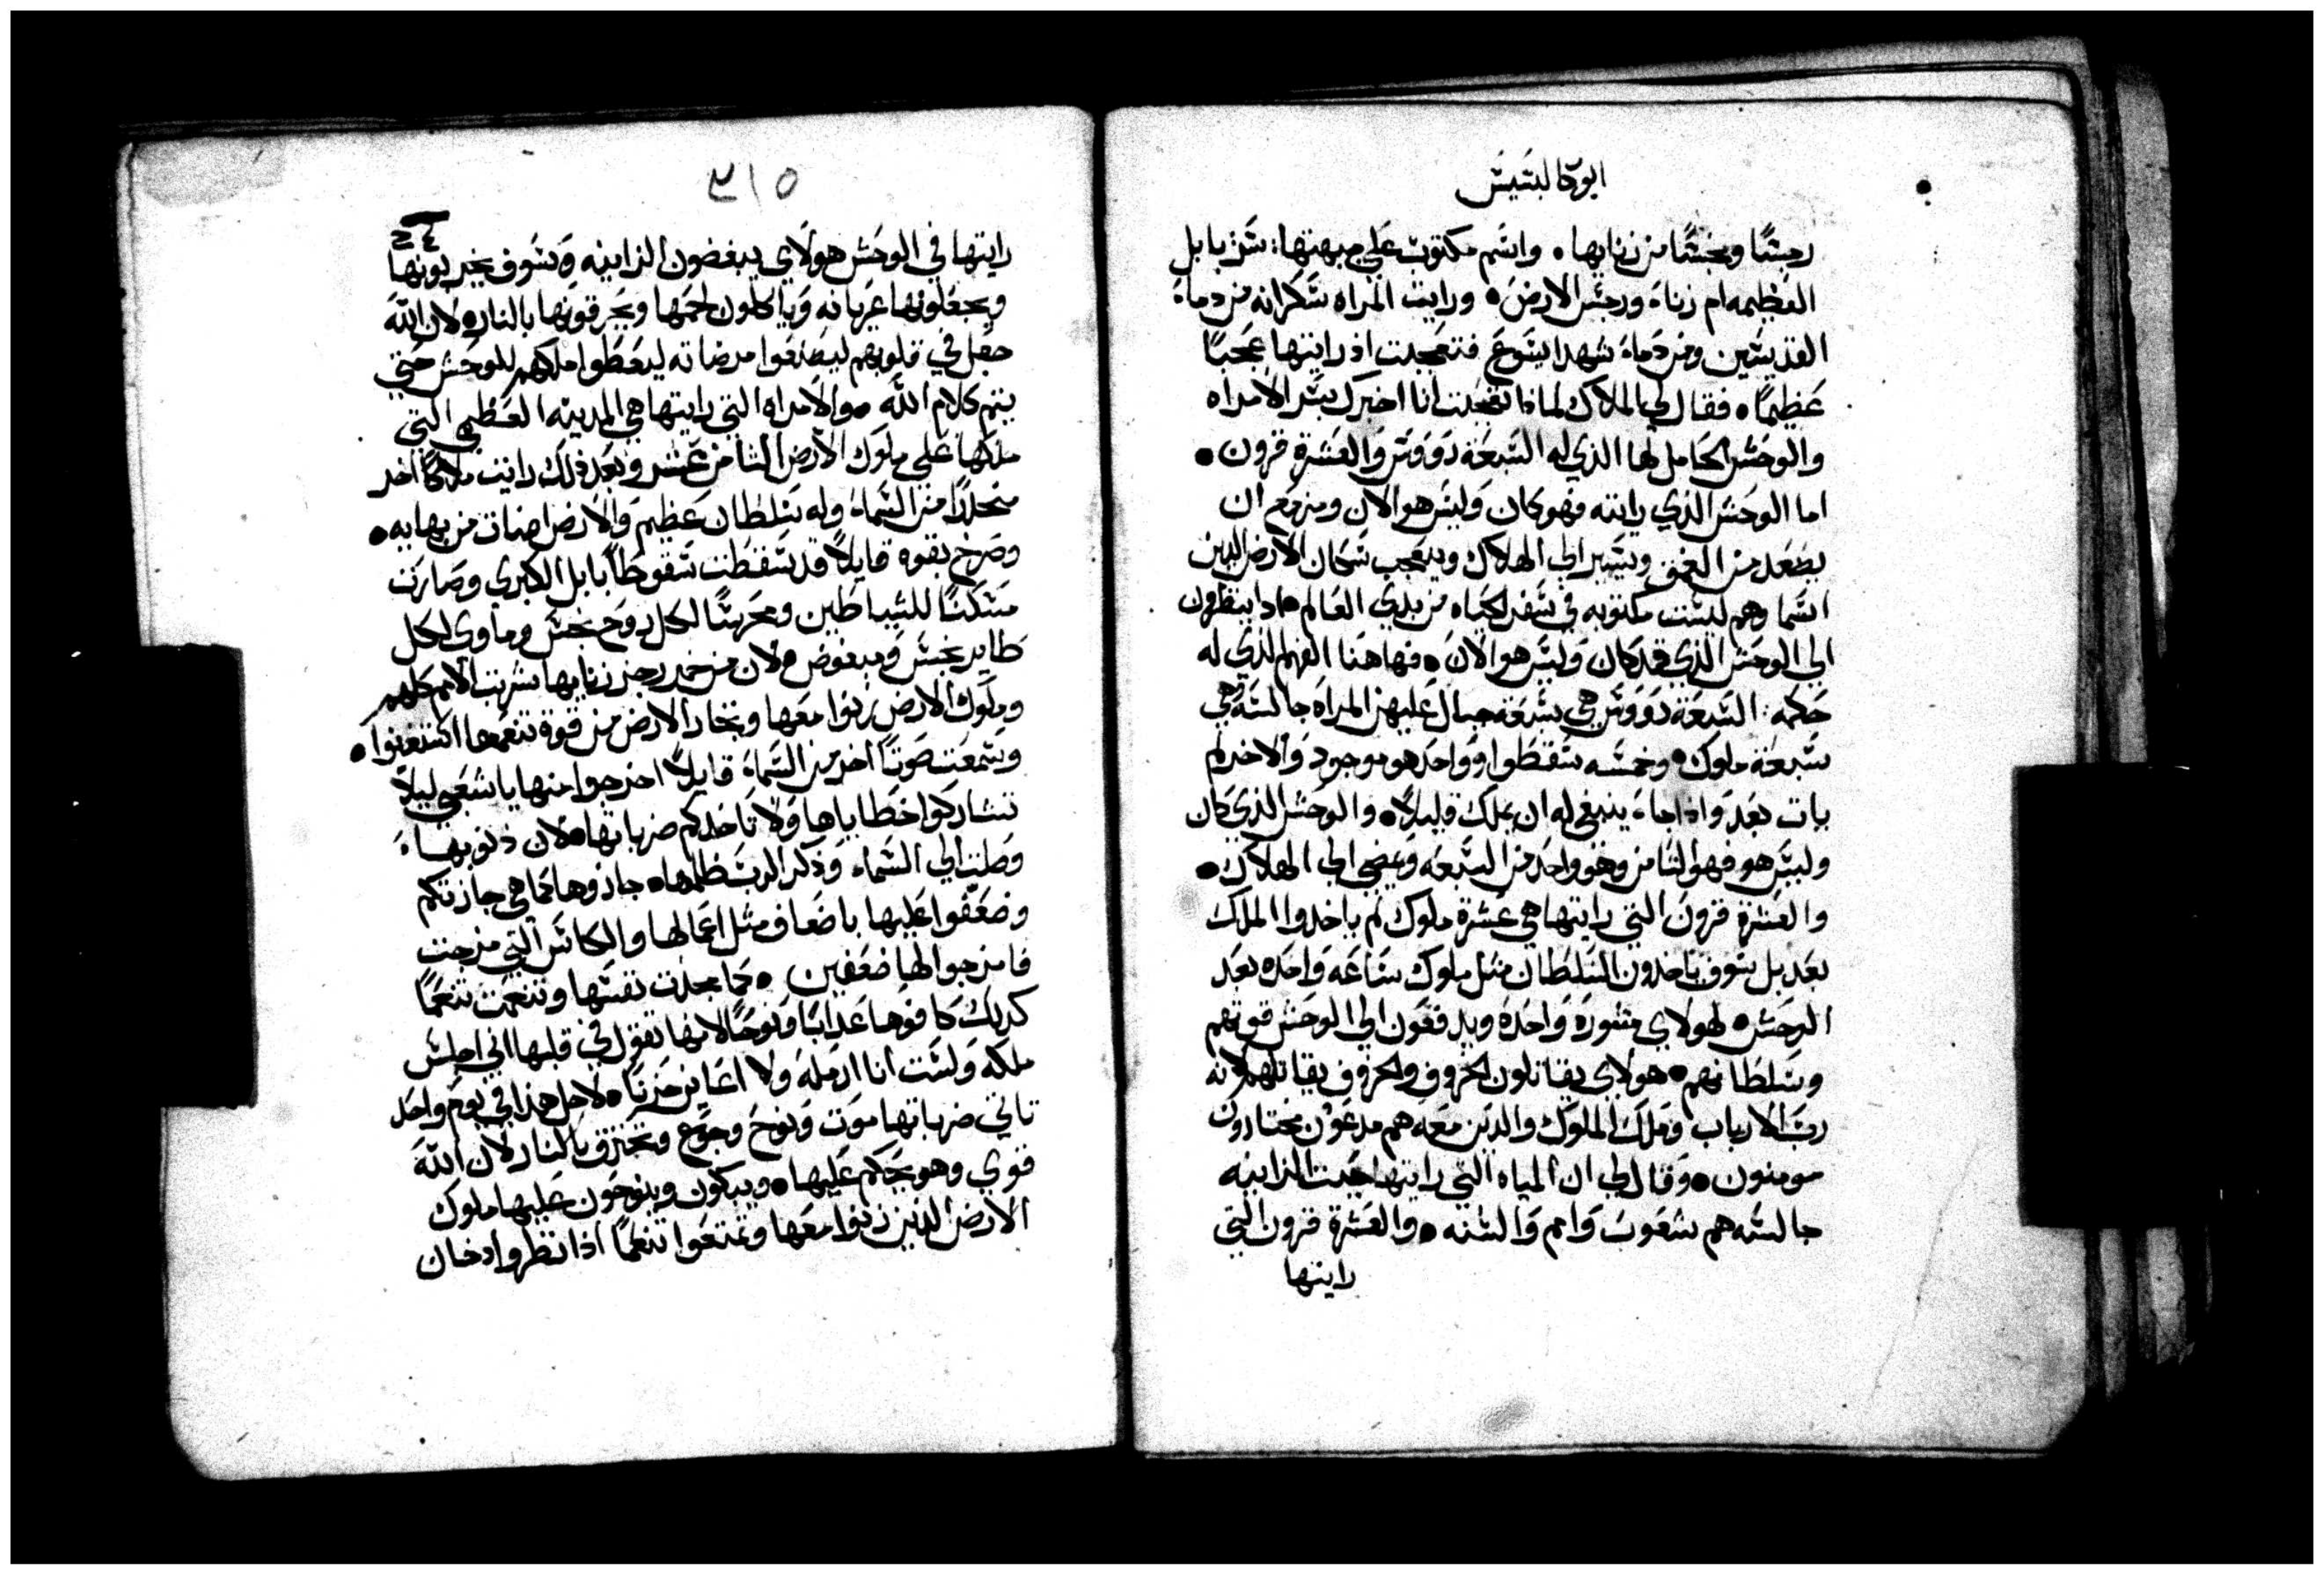 ابوكالبسيس
رجسًا ونجسًا من زنايها • واسم مكتوب على جبهتها : سر بابل
العظيمه ام زناء ورجس الارض • ورايت المراه سكرانه من دماء
القديسين ومن دماء شهدا يسوع فتعجبت اذ رايتها عجبًا
عظيمًا • فقال لي الملاك لماذا تعجبت انا اخبرك بسر الامراه
والوحش الحامل لها الذي له السبعة رووس والعشرة قرون •
اما الوحش الذي رايته فهو كان وليس هو الان ومزمع ان
يصعد من العمق ويسير الى الهلاك ويتعجب سكان الارض الذين
اسما وهم ليست مكتوبه في سفر الحياه من بدي العالم اذا ينظرون
الي الوحش الذي قد كان وليس هو الان • فهاهنا الفهم الذي له
حكمه : السبعة رووس هي سبعة جبال عليهن المراه جالسة وهي
سبعة ملوك • وخمسه سقطوا وواحد هو موجود والاخر لم
يات بعد واذا جاء ينبغي له ان يملك قليلاً • والوحش الذي كان
وليس هو فهو الثامن وهو واحد من السبعه ويمضي الي الهلاك •
والعشرة قرون التي رايتها هي عشرة ملوك لم ياخدوا الملك
بعد بل سوف ياخدون السلطان مثل ملوك ساعه واحده بعد
الوحش • لهولاي مشوره واحده ويدفعون الي الوحش قوتهم
وسلطانهم • هولاي يقاتلون الخروف والخروف يقاتلهم لانه
رب الارباب وملك الملوك والدين معه هم مدعوون مختارون
مومنون • وقال لي ان المياه التي رايتها حيث الزانيه
جالسه هم شعوب وامم والسنه • والعشرة قرون التي
رايتها
٣١٥
رايتها في الوحش هولاي يبغضون الزانيه وسوف يخربونها
ويجعلونها عريانه وياكلون لحمها ويحرقونها بالنار • لان الله
جعل في قلوبهم ليصنعوا مرضاته ليعطوا ملكهم للوحش حتي
يتم كلام الله • والامراه التي رايتها هي المدينه العظمي التي
ملكها علي ملوك الارض الثامن عشر وبعد ذلك رايت ملاكًا اخر
منحدرًا من السماء وله سلطان عظيم والارض اضات من بهايه •
وصرخ بقوه قايلاً قد سقطت سقوطًا بابل الكبري وصارت
مسكنًا للشياطين ومحرسًا لكل روح نجس وماوي لكل
طاير نجس ومبغوض • لان من خمر رجز زنايها شربت الامم كلهم
وملوك الارض زنوا معها وتجار الارض من قوة تنعمها استغنوا •
وسمعت صوتًا اخر من السماء قايلاً اخرجوا منها يا شعبي ليلاً
تشاركوا خطاياها ولا تاخدكم ضرباتها • لان دنوبها
وصلت الي السماء وذكر الرب ظلمها • جازوها كما هي جازتكم
وضعفوا عليها باضعاف مثل اعمالها والكاس التي مزجت
فامزجوا لها ضعفين • كما مجدت نفسها وتنعمت تنعمًا
كدلك كافوها عدابًا ونوحًا لانها تقول في قلبها اني اجلس
ملكه ولست انا ارمله ولا اعاين حزنًا • لاجل هدا في يوم واحد
تاتي ضرباتها موت ونوح وجوع وتحترق بالنار لان الله
قوي وهو يحكم عليها • ويبكون وينوحون عليها ملوك
الارض الدين زنوا معها وتمتعوا تنعمًا اذا نظروا دخان